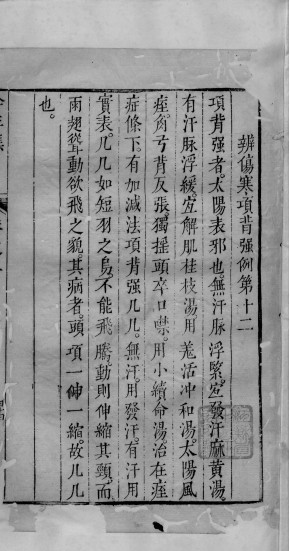 辨傷寒項背强例第十二
項背强者太陽表邪也無汗脉浮緊宜發汗麻黄湯
有汗脉浮緩宜解肌桂枝湯用羗活冲和湯太陽風
痓角弓背反張獨揺頭卒口噤用小續命湯治在痓
症條下有加減法項背强几几無汗用發汗有汗用
實表几几如短羽之鳥不能飛騰動則伸縮其頸而
兩翅聳動欲飛之貌其病者頭項一伸一縮故几几
也